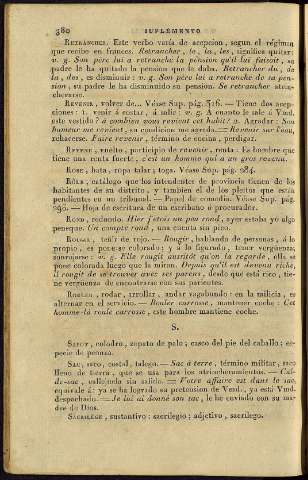 380 SUPLEMENTO
RETRANCHER. Este verbo varía de acepcion, segun el régimen
que recibe en frances. Retrancher, le, la, les, significa quitar:
v. g. Son père lui a retranché la pension qu'il lui faisoit, su
padre le ha quitado la pension que le daba. Retrancher du, de
la, des, es disminuir: v. g. Son père lui a retranché de sa pen-
sion, su padre le ha disminuido su pension. Se retrancher atrin-
cherarse.
REVENIR, volver de... Véase Sup. pág. 316. — Tiene dos acep-
ciones: 1. venir á costar, á salir: v. g. A quanto le sale á Vmd.
este vestido? á combien vous revient cet habit? 2. Agradar: Son
humeur me revient, su condicion me agrada. — Revenir sur l'eau,
rehacerse. Faire revenir, término de cocina, perdigar.
REVENU, vuelto, participio de revenir, renta: Es hombre que
tiene una renta fuerte, c'est un homme qui a un gros revenu.
ROBE, bata, ropa talar; toga. Véase Sup. pág. 284.
RÔLE, catálogo que los intendentes de provincia tienen de los
habitantes de su distrito, y tambien el de los pleitos que estan
pendientes en un tribunal. — Papel de comedia. Véase Sup. pág.
296. — Hoja de escritura de un escribano ó procurador.
ROND, redondo. Hier j'etois un peu rond, ayer estaba yo algo
peneque. Un compte rond, una cuenta sin pico.
ROUGIR, teñir de rojo. — Rougir, hablando de personas, á lo
propio, es ponerse colorado; y á lo figurado, tener vergüenza,
sonrojarse: v. g. Elle rougit aussitôt qu'on la regarde, ella se
pone colorada luego que la miran. Depuis qu'il est devenu riche,
il rougit de se trouver avec ses parens, desde que está rico, tie-
ne vergüenza de encontrarse con sus parientes.
ROULER, rodar, arrollar, andar vagabundo: en la milicia, es
alternar en el servicio. — Rouler carrosse, mantener coche: Cet
homme-là roule carrosse, este hombre mantiene coche.
S.
SABOT, colodro, zapato de palo; casco del pie del caballo; es-
pecie de peonza.
SAC, saco, costal, talega. — Sac à terre, término militar, saco
lleno de tierra, que se usa para los atrincheramientos. — Cul-
de-sac, callejuela sin salida. — Votre affaire est dans le sac,
equivale á: ya se ha logrado su pretension de Vmd., ya está Vmd.
despachado. — Je lui ai donné son sac, le he enviado con su ma-
dre de Dios.
SACRILÉGE, sustantivo: sacrilegio: adjetivo, sacrilego.